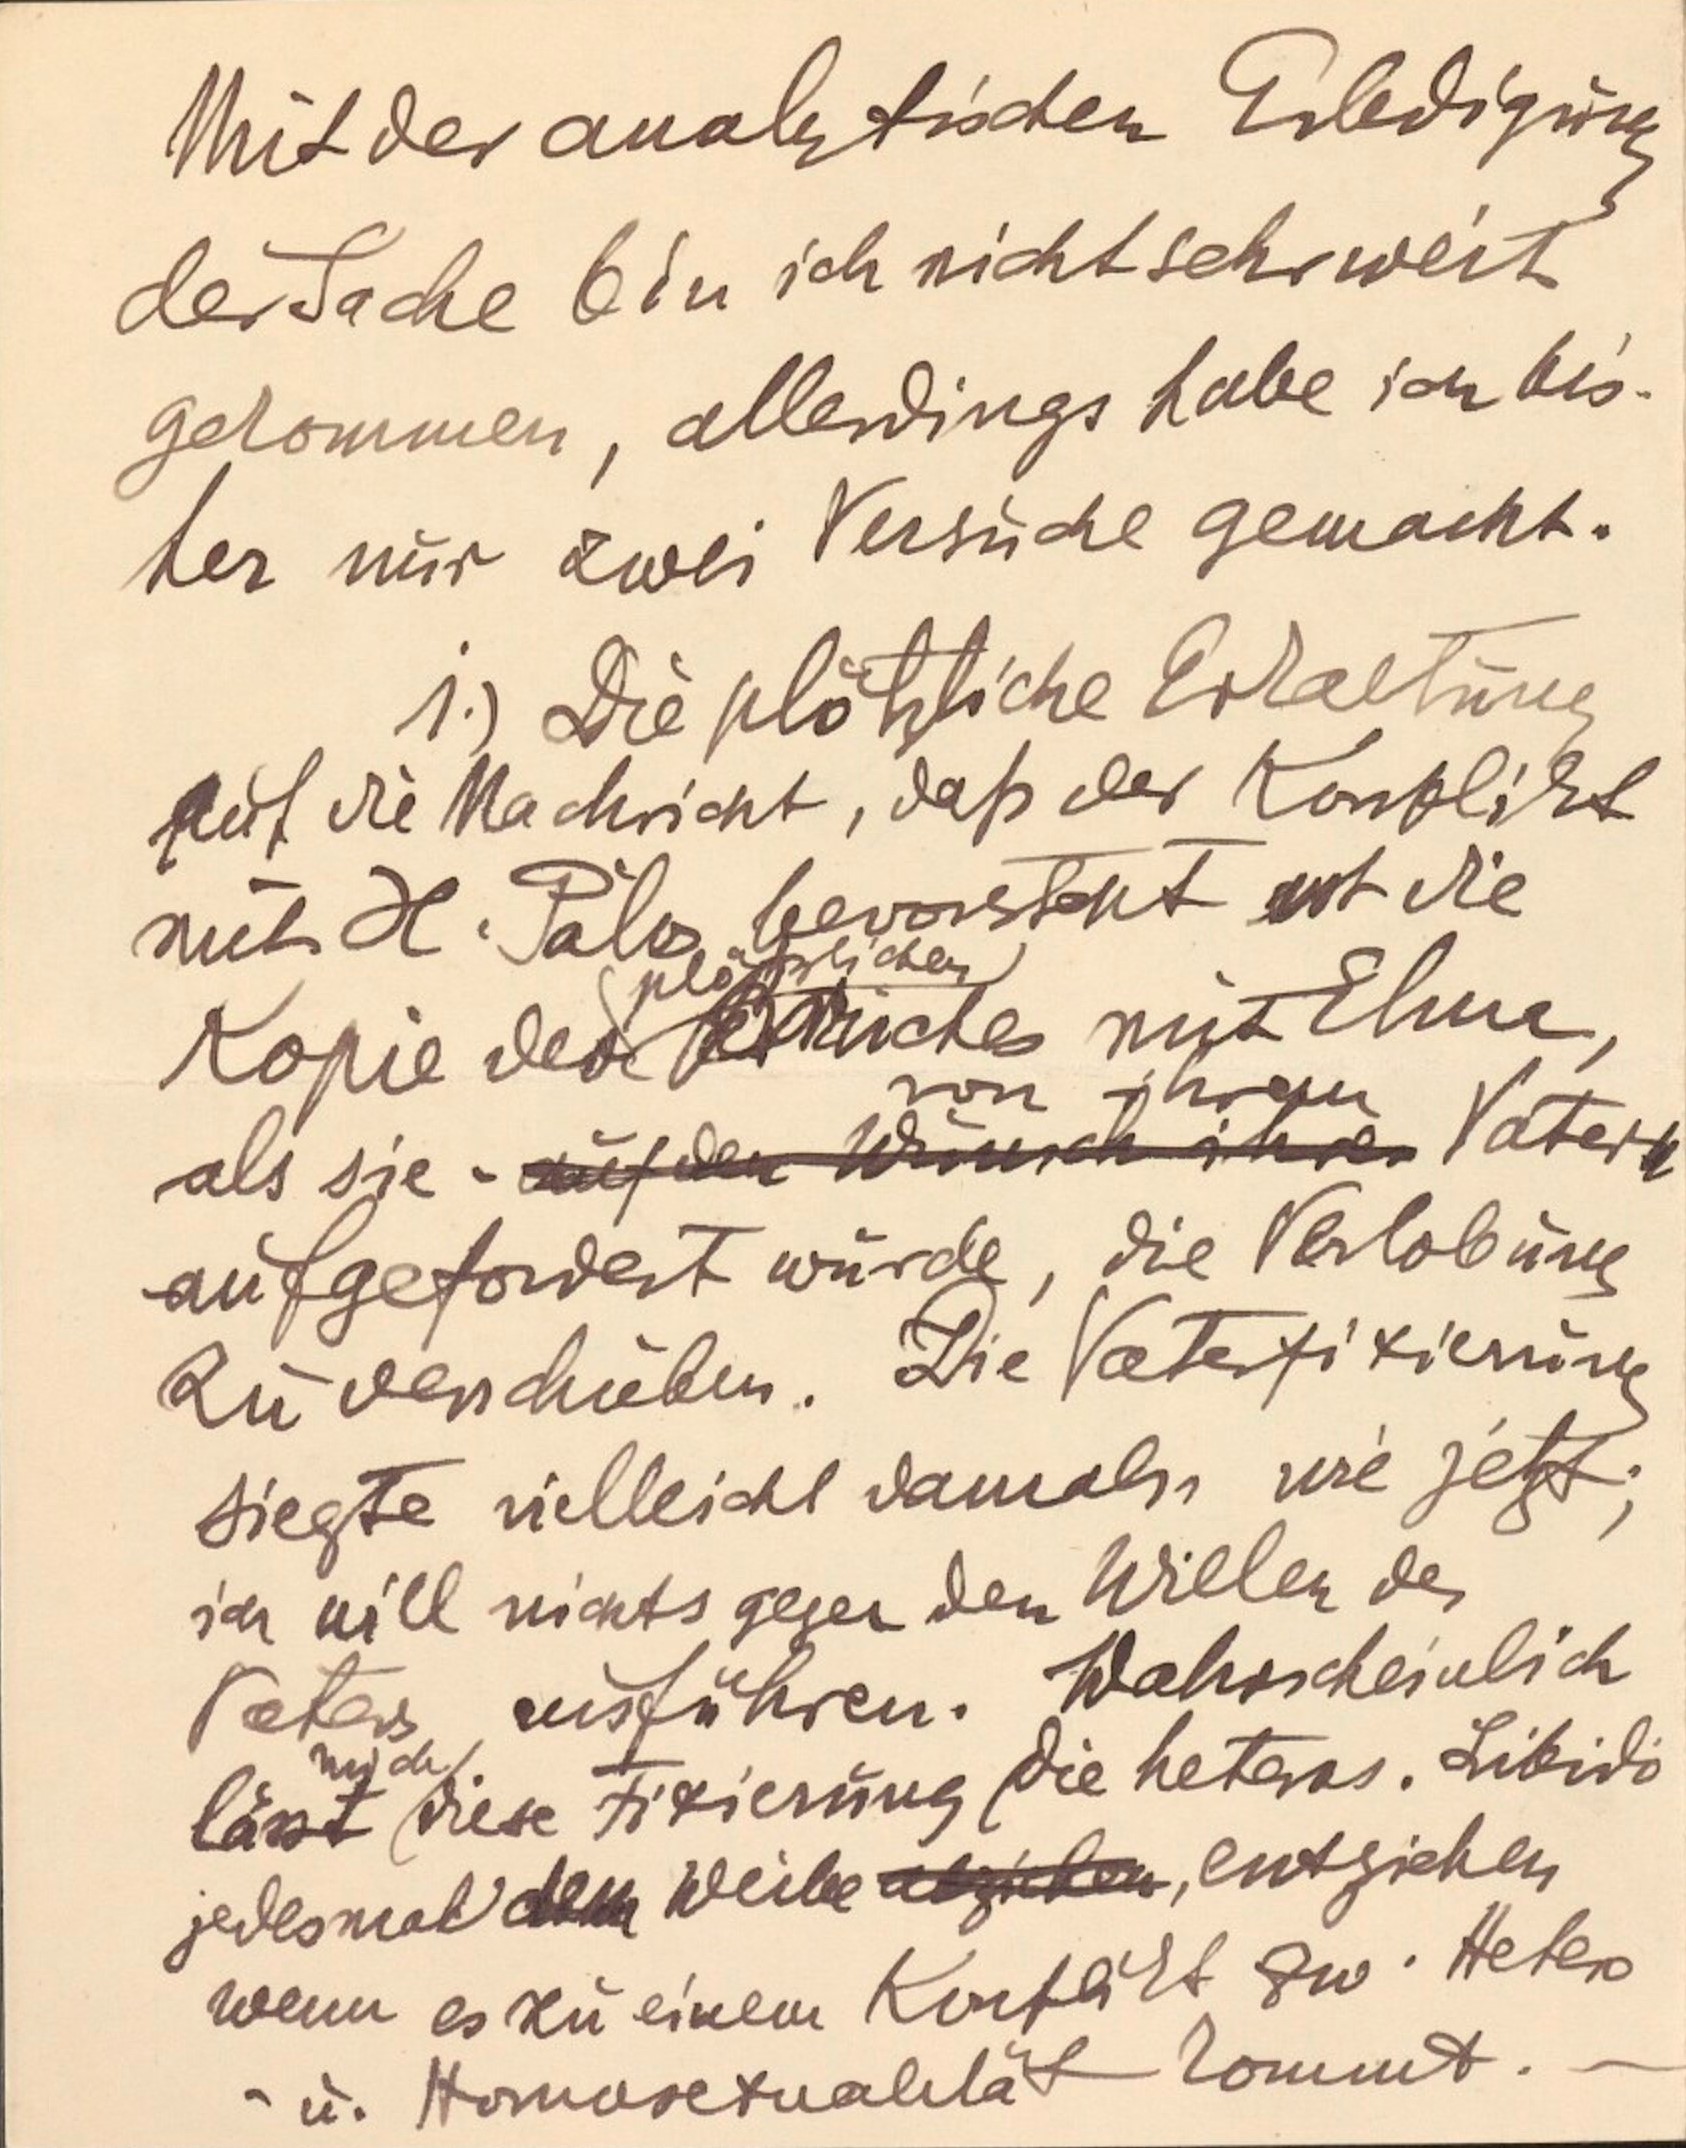 Mit der analytischen Erledigung
der Sache bin ich nicht sehr weit
gekommen, allerdings habe ich bis-
her nur zwei Versuche gemacht.
1.) Die plötzliche Erkaltung
auf die Nachricht, daß der Konflikt
mit H. Pálos bevorsteht ist die
plötzlichen
Kopie des Bruches mit Elma,
von ihrem
als sie - auf den Wunsch ihres Vater
aufgefordert wurde, die Verlobung
zu verschieben. Die Vaterfixierung
siegte vielleicht damals wie jetzt;
ich will nichts gegen den Willen des
Vaters ausführen. Wahrscheinlich
mich
lässt diese Fixierung die heteros. Libido
jedesmal dem Weibe abziehen, entziehen
wenn es zu einem Konflikt zw. Hetero
- u. Homosexualität kommt. —